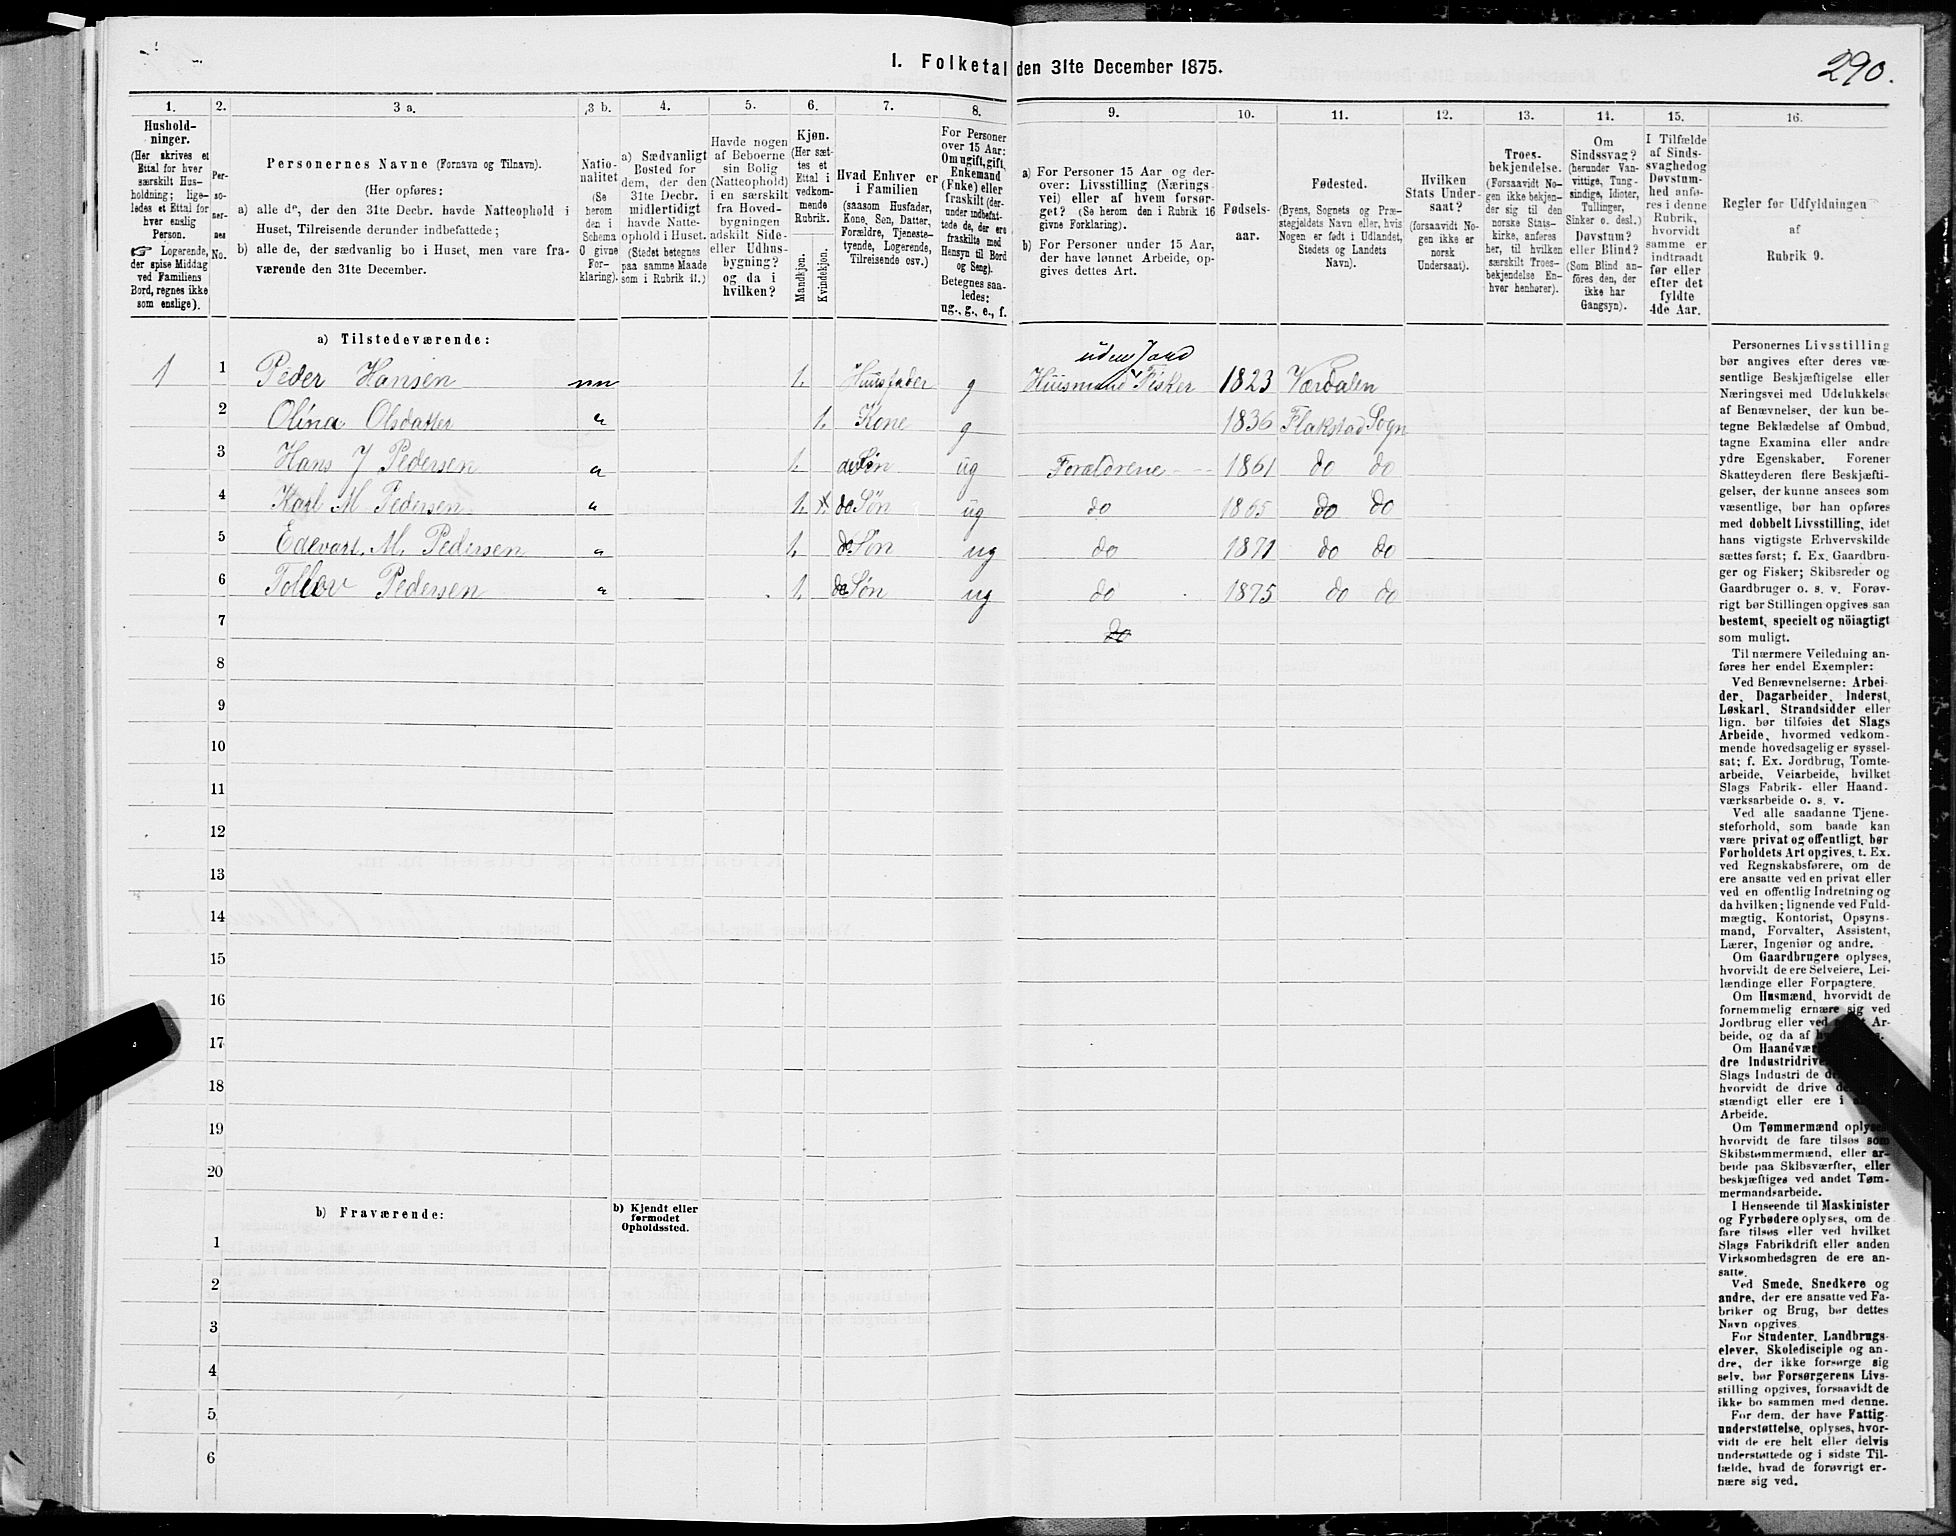 1. Folketal den 31te December 1875.
290.
1.
2.
3 a.
3 b.
4.
5.
6.
7.
8.
9.
10.
11.
12.
13.
14.
15.
16.
Hushold-
ninger.
(Her skrives et
Ettal for hver
særskilt Hus-
holdning; lige-
ledes et Ettal for
hver enslig
Person.
☞ Logerende,
der spise Middag
ved Familiens
Bord, regnes ikke
som enslige).
Per-
so-
ner-
nes
No.
Personernes Navne (Fornavn og Tilnavn).
(Her opføres:
a) alle de, der den 31te Decbr. havde Natteophold i
Huset, Tilreisende derunder indbefattede;
b) alle de, der sædvanlig bo i Huset, men vare fra-
værende den 31te December.
Natio-
nalitet
(Se
herom
den i
Schema
O givne
For-
klaring).
a) Sædvanligt
Bosted for
dem, der den
31te Decbr.
midlertidigt
havde Natte-
ophold i Huset.
(Stedet betegnes
paa samme Maade
som i Rubrik 11.)
Havde nogen
af Beboerne
sin Bolig
(Natteophold)
i en særskilt
fra Hoved-
bygningen
adskilt Side-
eller Udhus-
bygning?
og da i
hvilken?
Kjøn.
(Her sæt-
tes et
Ettal i
vedkom-
mende
Rubrik.
Mandkjøn.
Kvindekjøn.
Hvad Enhver er
i Familien
(saasom Husfader,
Kone, Søn, Datter,
Forældre, Tjeneste-
tyende, Logerende,
Tilreisende osv.)
For Personer
over 15 Aar:
Om ugift, gift,
Enkemand
(Enke) eller
fraskilt (der-
under indbefat-
tede de, der ere
fraskilte med
Hensyn til Bord
og Seng).
Betegnes saa-
ledes:
ug., g., e., f.
a) For Personer 15 Aar og der-
over: Livsstilling (Nærings-
vei) eller af hvem forsør-
get? (Se herom den i Rubrik 16
givne Forklaring).
b) For Personer under 15 Aar,
der have lønnet Arbeide, op-
gives dettes Art.
Fødsels-
aar.
Fødested.
(Byens, Sognets og Præ-
stegjeldets Navn eller, hvis
Nogen er født i Udlandet,
Stedets og Landets
Navn).
Hvilken
Stats Under-
saat?
(forsaavidt No-
gen ikke er
norsk
Undersaat).
Troes-
bekjendelse.
(Forsaavidt No-
gen ikke bekjen-
der sig til den
norske Stats-
kirke, anføres
her, til hvilken
særskilt Troes-
bekjendelse En-
hver henhører).
Om
Sindssvag?
(herunder Van-
vittige, Tung-
sindige, Idioter,
Tullinger,
Sinker o. desl.)
Døvstum?
eller Blind?
(Som Blind an-
føres den, der
ikke har
Gangsyn).
I Tilfælde
af Sinds-
svaghed og
Døvstum-
hed anfø-
res i denne
Rubrik,
hvorvidt
samme er
indtraadt
før eller
efter det
fyldte
4de Aar.
Regler før Udfyldningen
af
Rubrik 9.
a) Tilstedeværende:
uden Jord
1 1 Peder Hansen nn 1. Huusfader g Huusmand Fisker 1823 Værdalen
2 Olina Olsdatter " 1. Kone g 1836 Flakstad Sogn
3 Hans J Pedersen " 1. deres Søn ug Forældrene 1861 do do
4 Karl M Pedersen " 1. do Søn ug do 1865 do do
5 Edevart M. Pedersen " 1. do Søn ug do 1871 do do
6 Tollov Pedersen " 1. do Søn ug do 1875 do do
7 do
8
9
10
11
12
13
14
15
16
17
18
19
20
b) Fraværende:
b) Kjendt eller
formodet
Opholdssted.
1
2
3
4
5
6
Personernes Livsstilling
bør angives efter deres væ-
sentlige Beskjæftigelse eller
Næringsvei med Udelukkelse
af Benævnelser, der kun be-
tegne Beklædelse af Ombud,
tagne Examina eller andre
ydre Egenskaber. Forener
Skatteyderen flere Beskjæfti-
gelser, der kunne ansees som
væsentlige, bør han opføres
med dobbelt Livsstilling, idet
hans vigtigste Erhvervskilde
sættes først; f. Ex. Gaardbru-
ger og Fisker; Skibsreder og
Gaardbruger o. s. v. Forøv-
rigt bør Stillingen opgives saa
bestemt, specielt og nöiagtigt
som muligt.
Til nærmere Veiledning an-
føres her endel Exempler:
Ved Benævnelserne: Arbei-
der, Dagarbeider, Inderst,
Løskarl, Strandsidder eller
lign. bør tilføies det Slags
Arbeide, hvormed vedkom-
mende hovedsagelig er syssel-
sat; f. Ex. Jordbrug, Tomte-
arbeide, Veiarbeide, hvilket
Slags Fabrik- eller Haand-
værksarbeide o. s. v.
Ved alle saadanne Tjene-
steforhold, som baade kan
være privat og offentligt, bør
Forholdets Art opgives, t. Ex.
ved Regnskabsførere, om de
ere ansatte ved en privat eller
ved en offentlig Indretning og
da hvilken; lignende ved Fuld-
mægtig, Kontorist, Opsyns-
mand, Forvalter, Assistent,
Lærer, Ingeniør og andre.
Om Gaardbrugere oplyses,
hvorvidt de ere Selveiere, Lei-
lændinge eller Forpagtere.
Om Husmænd, hvorvidt de
fornemmelig ernære sig ved
Jordbrug eller ved Ar-
beide, og da af
Om Haandvær
dre Industridrive
Slags Industri de
hvorvidt de drive
stændigt eller ere i
Arbeide.
Om Tømmermænd oplyses
hvorvidt de fare tilsøs som
Skibstømmermænd, eller ar-
beide paa Skibsværfter, eller
beskjæftiges ved andet Tøm-
mermandsarbeide.
I Henseende til Maskinister
og Fyrbødere oplyses, om de
fare tilsøs eller ved hvilket
Slags Fabrikdrift eller anden
Virksomhedsgren de ere an-
satte.
Ved Smede, Snedkere og
andre, der ere ansatte ved Fa-
briker og Brug, bør dettes
Navn opgives.
For Studenter, Landbrugs-
elever, Skoledisciple og an-
dre, der ikke forsørge sig
selv, bør Forsørgerens Livs-
stilling opgives, forsaavidt de
ikke bo sammen med denne.
For dem, der have Fattig-
understøttelse, oplyses, hvor-
vidt de ere helt eller delvis
understøttede og i sidste Til-
fælde, hvad de forøvrigt er-
nære sig ved.